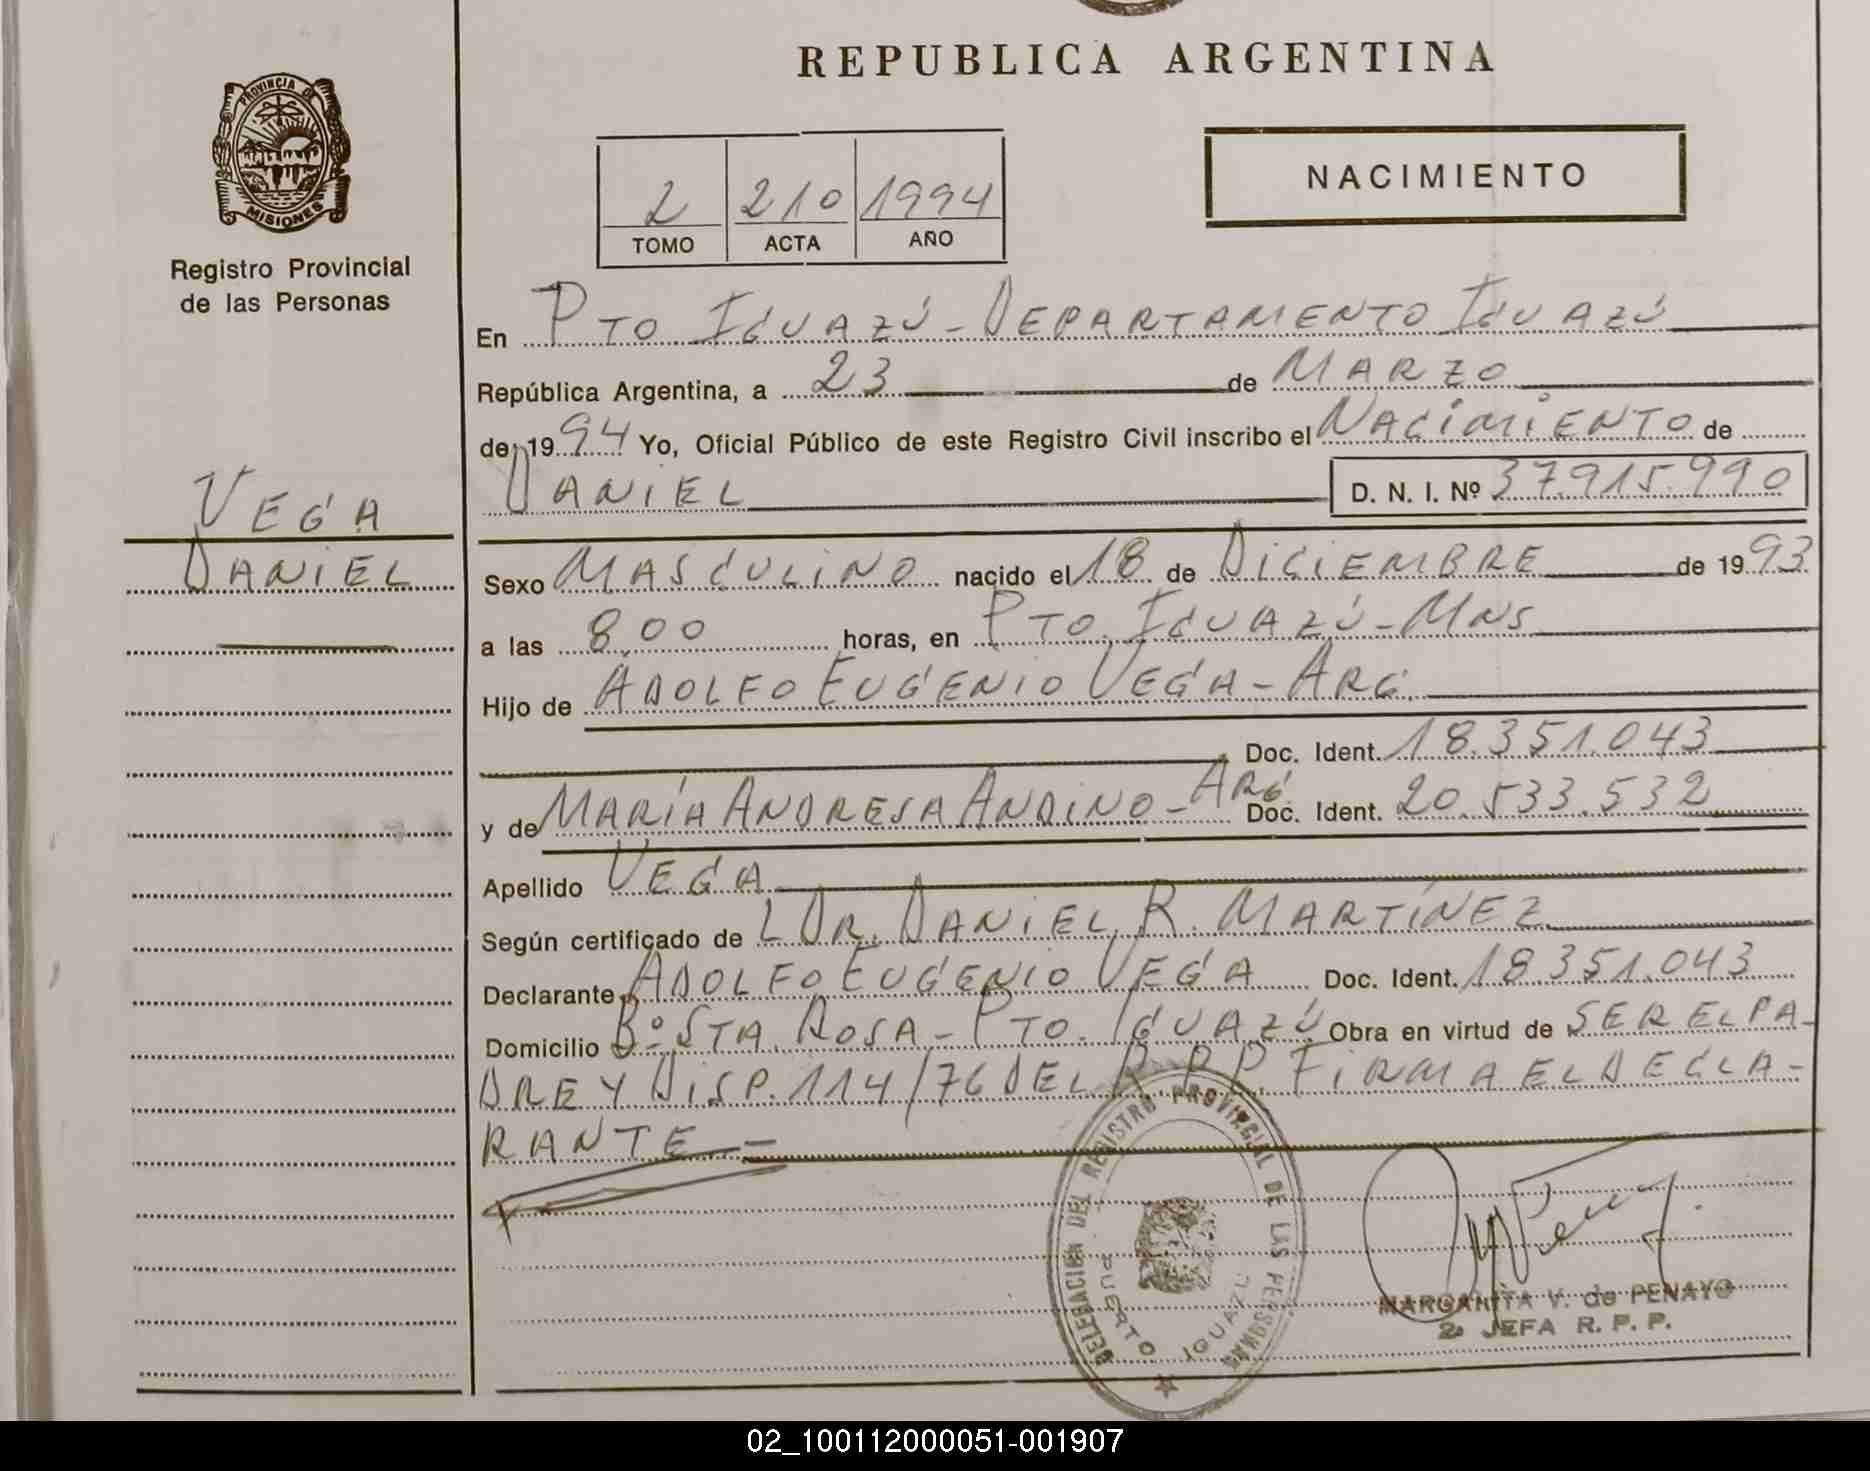 REPUBLICA ARGENTINA
PROVINCIA DE
MISIONES
Registro Provincial
de las Personas
2 210 1994
TOMO ACTA AÑO
NACIMIENTO
VEGA
DANIEL
En PTO IGUAZÚ - DEPARTAMENTO IGUAZÚ
República Argentina, a 23 de MARZO
de 1994 Yo, Oficial Público de este Registro Civil inscribo el NACIMIENTO de
DANIEL D. N. I. Nº 37.915.990
Sexo MASCULINO nacido el 18 de DICIEMBRE de 1993
a las 800 horas, en PTO. IGUAZÚ - MNS
Hijo de ADOLFO EUGENIO VEGA - ARG.
Doc. Ident. 18.351.043
y de MARÍA ANDRESA ANDINO - ARG. Doc. Ident. 20.533.532
Apellido VEGA
Según certificado de L DR. DANIEL R. MARTÍNEZ
Declarante ADOLFO EUGENIO VEGA Doc. Ident. 18.351.043
Domicilio Bº STA. ROSA - PTO. IGUAZÚ Obra en virtud de SER EL PA-
DRE Y DISP. 114/76 DEL R.P.P. FIRMA EL DECLA-
RANTE -
DELEGACION DEL REGISTRO PROVINCIAL DE LAS PERSONAS
PUERTO IGUAZU
MARGARITA V. de PENAYO
2a JEFA R. P. P.
02_100112000051-001907